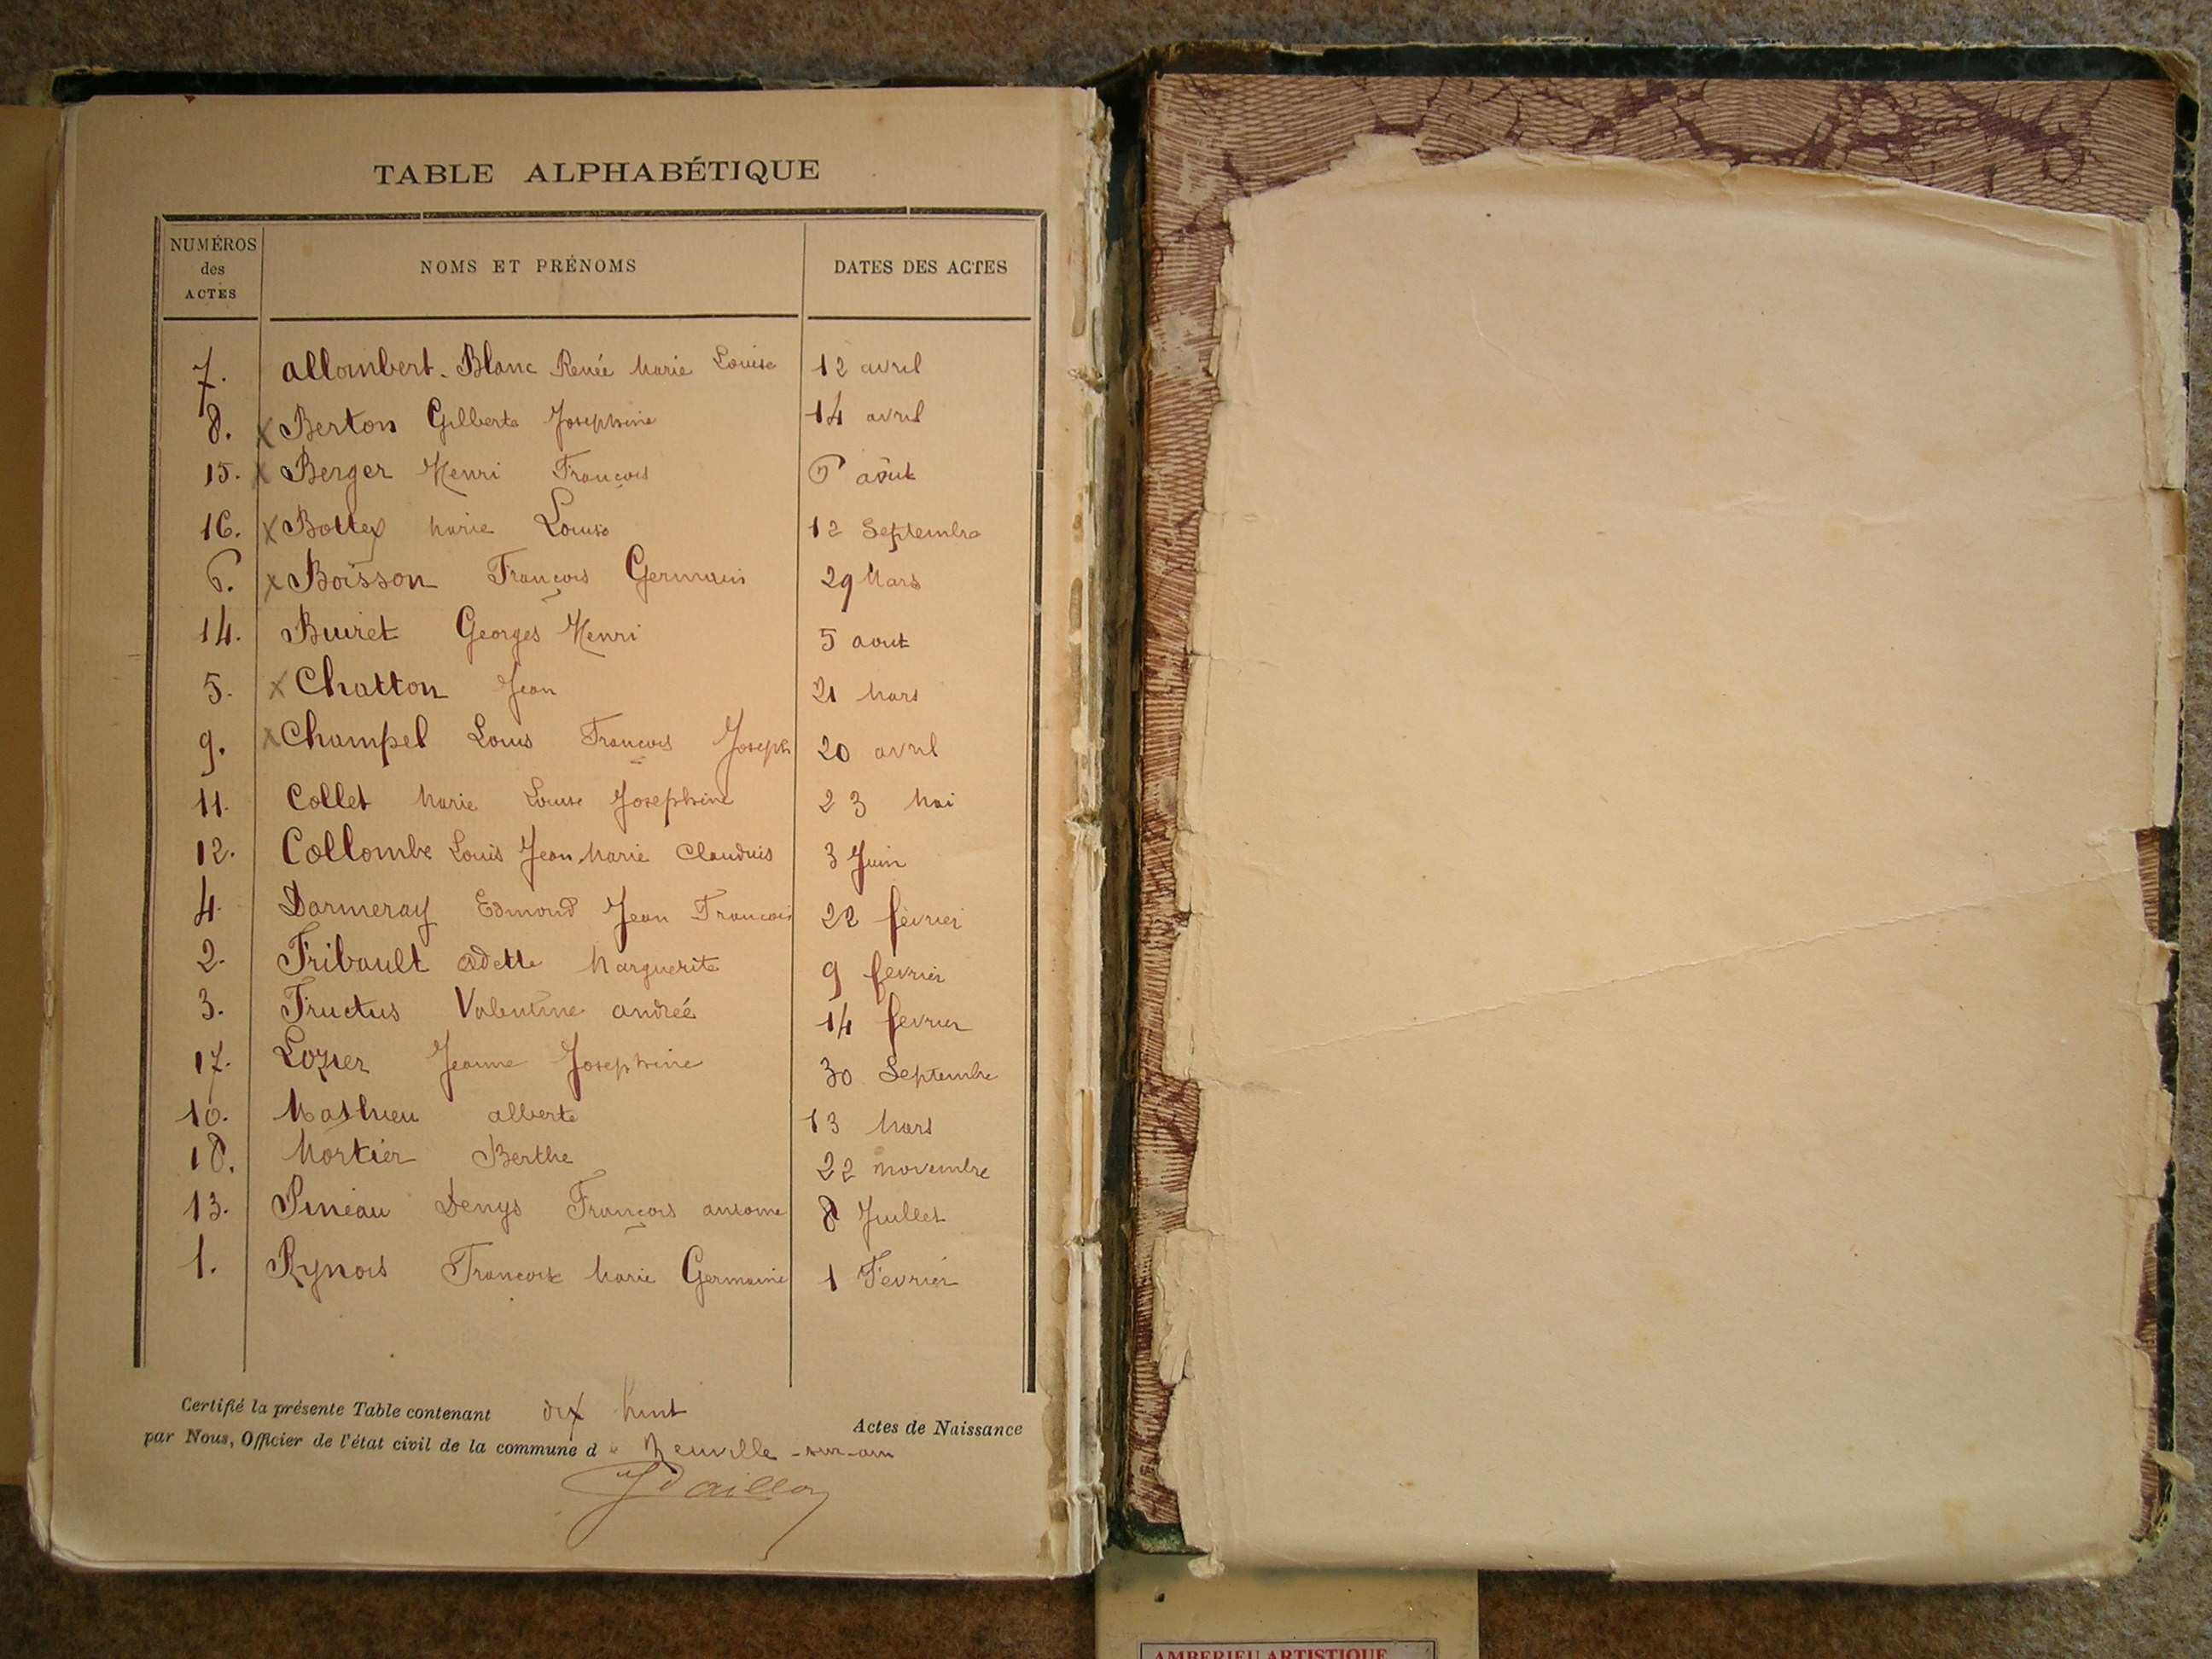 TABLE ALPHABÉTIQUE
NUMÉROS des ACTES NOMS ET PRÉNOMS DATES DES ACTES
7. Allombert-Blanc Renée Marie Louise 12 avril
8. x Berton Gilberte Josephine 14 avril
15. x Berger Henri François août
16. x Bottex Marie Louise 12 Septembre
6. x Boisson François Germain 29 Mars
14. Buiret Georges Henri 5 aout
5. x Chatton Jean 21 Mars
9. x Champel Louis François Joseph 20 avril
11. Collet Marie Louise Josephine 23 Mai
12. Collombe Louis Jean Marie Claudius 3 Juin
4. Darmeray Edmond Jean François 22 février
2. Fribault Odette Marguerite 9 fevrier
3. Fructus Valentine andrée 14 fevrier
17. Lozier Jeanne Josephine 30 Septembre
10. Mathieu alberte 13 Mars
18. Mortier Berthe 22 novembre
13. Pineau Denys François antoine 8 Juillet
1. Rynois Françoise Marie Germaine 1 Fevrier
Certifié la présente Table contenant dix huit Actes de Naissance
par Nous, Officier de l'état civil de la commune de Neuville-sur-ain
AMBERIEU ARTISTIQUE